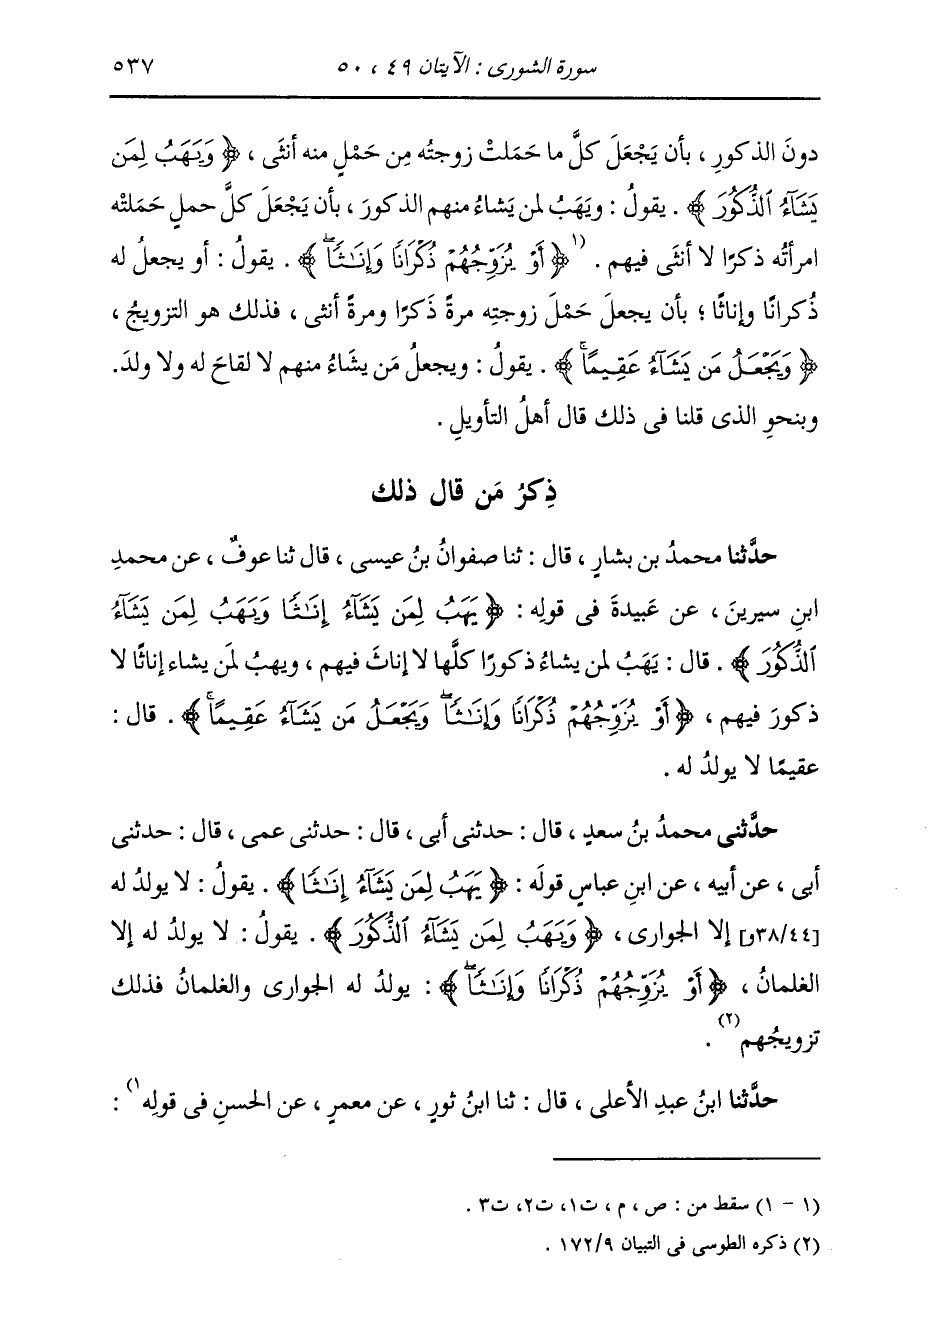 سورة الشورى : الآيتان ٤٩ ، ٥٠ ٥٣٧
دونَ الذكورِ ، بأن يَجْعَلَ كلَّ ما حَمَلتْ زوجتُه مِن حَمْلٍ منه أنثَى ، ﴿ وَيَهَبُ لِمَن
يَشَآءُ ٱلذُّكُورَ ﴾ . يقولُ : ويَهَبُ لمن يَشاءُ منهم الذكورَ ، بأن يَجْعَلَ كلَّ حملٍ حَمَلتْه
امرأتُه ذكرًا لا أنثَى فيهم . (١ ﴿ أَوْ يُزَوِّجُهُمْ ذُكْرَانًا وَإِنَٰثًاۖ ﴾ . يقولُ : أو يجعلُ له
ذُكرانًا وإناثًا ؛ بأن يجعلَ حَمْلَ زوجتِه مرةً ذَكرًا ومرةً أنثى ، فذلك هو التزويجُ ،
﴿ وَيَجْعَلُ مَن يَشَآءُ عَقِيمًاۚ ﴾ . يقولُ : ويجعلُ مَن يشاءُ منهم لا لقاحَ له ولا ولدَ.
وبنحوِ الذى قلنا فى ذلك قال أهلُ التأويلِ .
ذِكرُ مَن قال ذلك
حدَّثنا محمدُ بن بشارٍ ، قال : ثنا صفوانُ بنُ عيسى ، قال ثنا عوفٌ ، عن محمدِ
ابنِ سيرينَ ، عن عَبيدةَ فى قولِه : ﴿ يَهَبُ لِمَن يَشَآءُ إِنَٰثًا وَيَهَبُ لِمَن يَشَآءُ
ٱلذُّكُورَ ﴾ . قال : يَهَبُ لمن يشاءُ ذكورًا كلَّها لا إناثَ فيهم ، ويهبُ لمَن يشاء إناثًا لا
ذكورَ فيهم ، ﴿ أَوْ يُزَوِّجُهُمْ ذُكْرَانًا وَإِنَٰثًاۖ وَيَجْعَلُ مَن يَشَآءُ عَقِيمًاۚ ﴾ . قال :
عقيمًا لا يولدُ له .
حدَّثنى محمدُ بنُ سعدٍ ، قال : حدثنى أبى ، قال : حدثنى عمى ، قال : حدثنى
أبى ، عن أبيه ، عن ابنِ عباسٍ قولَه : ﴿ يَهَبُ لِمَن يَشَآءُ إِنَٰثًا ﴾ . يقولُ : لا يولدُ له
[٣٨/٤٤و] إلا الجوارى ، ﴿ وَيَهَبُ لِمَن يَشَآءُ ٱلذُّكُورَ ﴾ . يقولُ : لا يولدُ له إلا
الغلمانُ ، ﴿ أَوْ يُزَوِّجُهُمْ ذُكْرَانًا وَإِنَٰثًاۖ ﴾ : يولدُ له الجوارى والغلمانُ فذلك
تزويجُهم (٢) .
حدَّثنا ابنُ عبدِ الأعلى ، قال : ثنا ابنُ ثورٍ ، عن معمرٍ ، عن الحسنِ فى قولِه ١) :
(١ - ١) سقط من : ص ، م ، ت١، ت٢، ت٣ .
(٢) ذكره الطوسى فى التبيان ١٧٢/٩ .